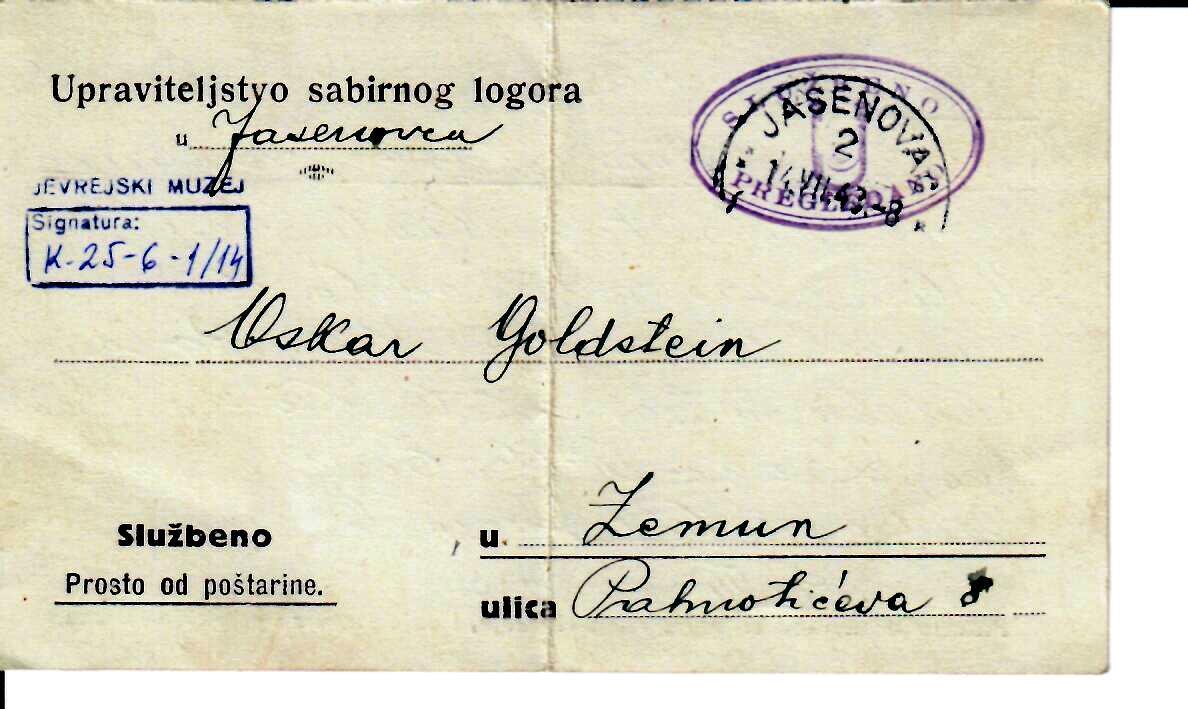 Upraviteljstvo sabirnog logora
u Jasenovcu
JEVREJSKI MUZEJ
Signatura:
K-25-6-1/14
SLUŽBENO
PREGLEDANO
JASENOVAC
2
14.VII.43.-8
Oskar Goldstein
Službeno
Prosto od poštarine.
u Zemun
ulica Palmotićeva 8